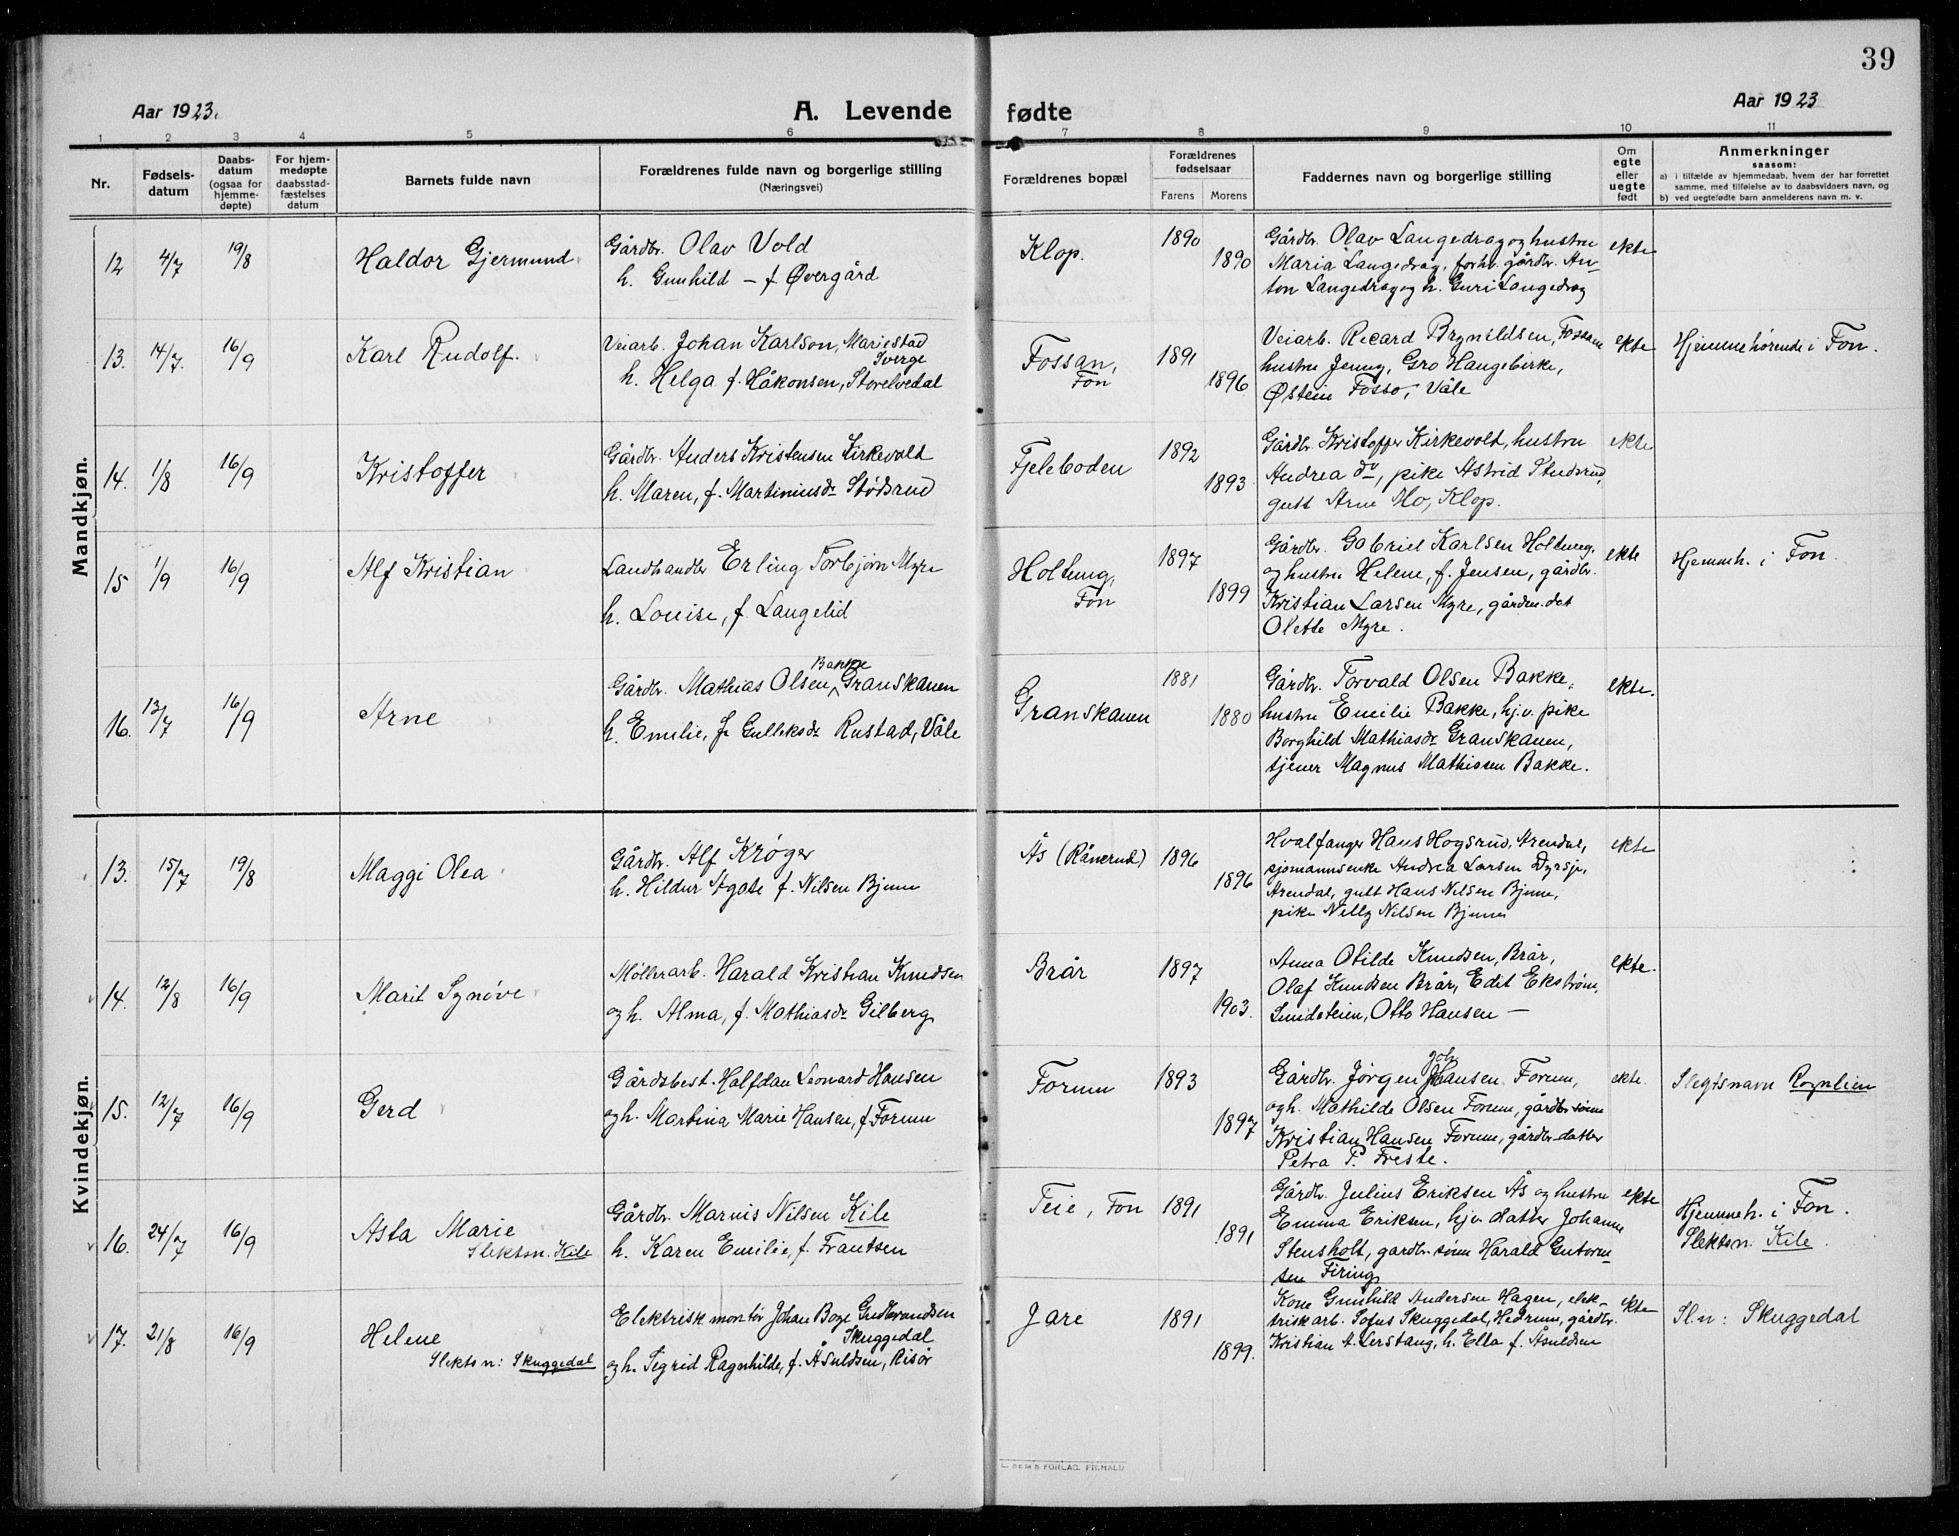 39
Aar 1923.
A. Levende fødte
Aar 1923
1 2 3 4 5 6 7 8 9 10 11
Nr.
Fødsels-
datum
Daabs-
datum
(ogsaa for
hjemme-
døpte)
For hjem-
medøpte
daabsstad-
fæstelses
datum
Barnets fulde navn
Forældrenes fulde navn og borgerlige stilling
(Næringsvei)
Forældrenes bopæl
Forældrenes
fødselsaar
Farens Morens
Faddernes navn og borgerlige stilling
Om
egte
eller
uegte
født
Anmerkninger
saasom:
a) i tilfælde av hjemmedaab, hvem der har forrettet
samme, med tilføielse av to daabsvidners navn, og
b) ved uegtefødte barn anmelderens navn m. v.
Mandkjøn.
12 4/7 19/8 Haldor Gjermund
Gårdbr. Olav Vold
h. Gunhild — f Øvergård
Klop. 1890 1890
Gårdbr. Olav Langedrag og hustru
Maria Langedrag, forhv. gårdbr. An-
ton Langedrag og h. Guri Langedrag
ekte
13. 14/7. 16/9 Karl Rudolf.
Veiarb. Johan Karlson, Mariestad
Sverge
h. Helga f. Håkonsen, Storelvedal
Fossan,
Fon
1891 1896
Veiarb. Ricard Brynildsen, Fossan
hustru Jenny, Gro Haugebirke,
Østein Fosso, Våle
ekte
Hjemmehørende i Fon.
14. 1/8 16/9 Kristoffer
Gårdbr. Anders Kristensen Kirkevold
h. Maren, f. Martiniusdr Stødsrud
Fjeleboden 1892 1893
Gårdbr. Kristoffer Kirkevold, hustru
Andrea do, pike Astrid Studsrud,
gutt Arne Mo, Klop.
ekte
15 1/9 16/9 Alf Kristian
Landhandler Erling Torbjørn Myre
h. Louise, f. Langelid
Holtung,
Fon
1897 1899
Gårdbr. Gabriel Karlsen Holtung,
og hustru Helene, f. Jensen, gårdbr.
Kristian Larsen Myre, gårdm.dat
Olette Myre.
ekte
Hjemmeh. i Fon.
16. 13/7 16/9 Arne
Bakke
Gårdbr. Mathias Olsen, Granskauen
h. Emilie, f Gulleksdr Rustad, Våle
Granskauen 1881 1880
Gårdbr. Torvald Olsen Bakke,
hustru Emilie Bakke, hj.v. pike
Borghild Mathiasdr Granskauen,
tjener Magnus Mathisen Bakke.
ekte.
Kvindekjøn.
13. 15/7 19/8 Maggi Olea
Gårdbr. Alf Krøger
h. Hildur Agate f. Nilsen Bjune
Ås (Rånerud) 1896 1896
Hvalfanger Hans Hogsrud, Arendal,
sjømannsenke Andrea Larsen Dyrsjø,
Arendal, gutt Hans Nilsen Bjune,
pike Nelly Nilsen Bjune
ekte
14. 12/8 16/9 Marit Synøve
Møllerarb. Harald Kristian Knudsen
og h. Alma, f. Mathiasdr Gilberg
Brår 1897 1903.
Anna Otilde Knudsen, Brår,
Olaf Knudsen Brår, Edit Ekstrøm,
Smidsteien, Otto Hansen —
ekte.
15. 12/7 16/9 Gerd
Gårdsbest. Halfdan Leonard Hansen
og h. Martina Marie Hansen, f Forum
Forum 1893 1897
Joh
Gårdbr. Jørgen Hansen Forum,
og h. Mathilde Olsen Forum, gårdbr sønn
Kristian Hansen Forum, gårdbr. datter
Petra P. Freste.
ekte.
Slegtsnavn Rognlien
16. 24/7 16/9 Asta Marie
Slektsn. Kile
Gårdbr. Marius Nilsen Kile
h. Karen Emilie, f. Frantsen
Teie, Fon 1891 1891
Gårdbr. Julius Eriksen Ås og hustru
Emma Eriksen, hjv. datter Johanne
Stensholt, gardbr. sønn Harald Gutorm-
sen Firing
ekte
Hjemmeh. i Fon.
Slektsn. Kile.
17. 21/8 16/9 Helene
Slektsn: Skuggedal
Elektrisk montør Johan Boye Gudbrandsen
Skuggedal
og h. Sigrid Ragnhilde, f. Åsuldsen, Risør
Jare 1891 1899.
Kone Gunhild Andersen Hagen, elek-
triskarb. Sofus Skuggedal, Hedrum, gårdbr.
Kristian A. Lerstang, h. Ella f. Åsuldsen
ekte
Sl.n: Skuggedal
FORLAG. FR.HALD